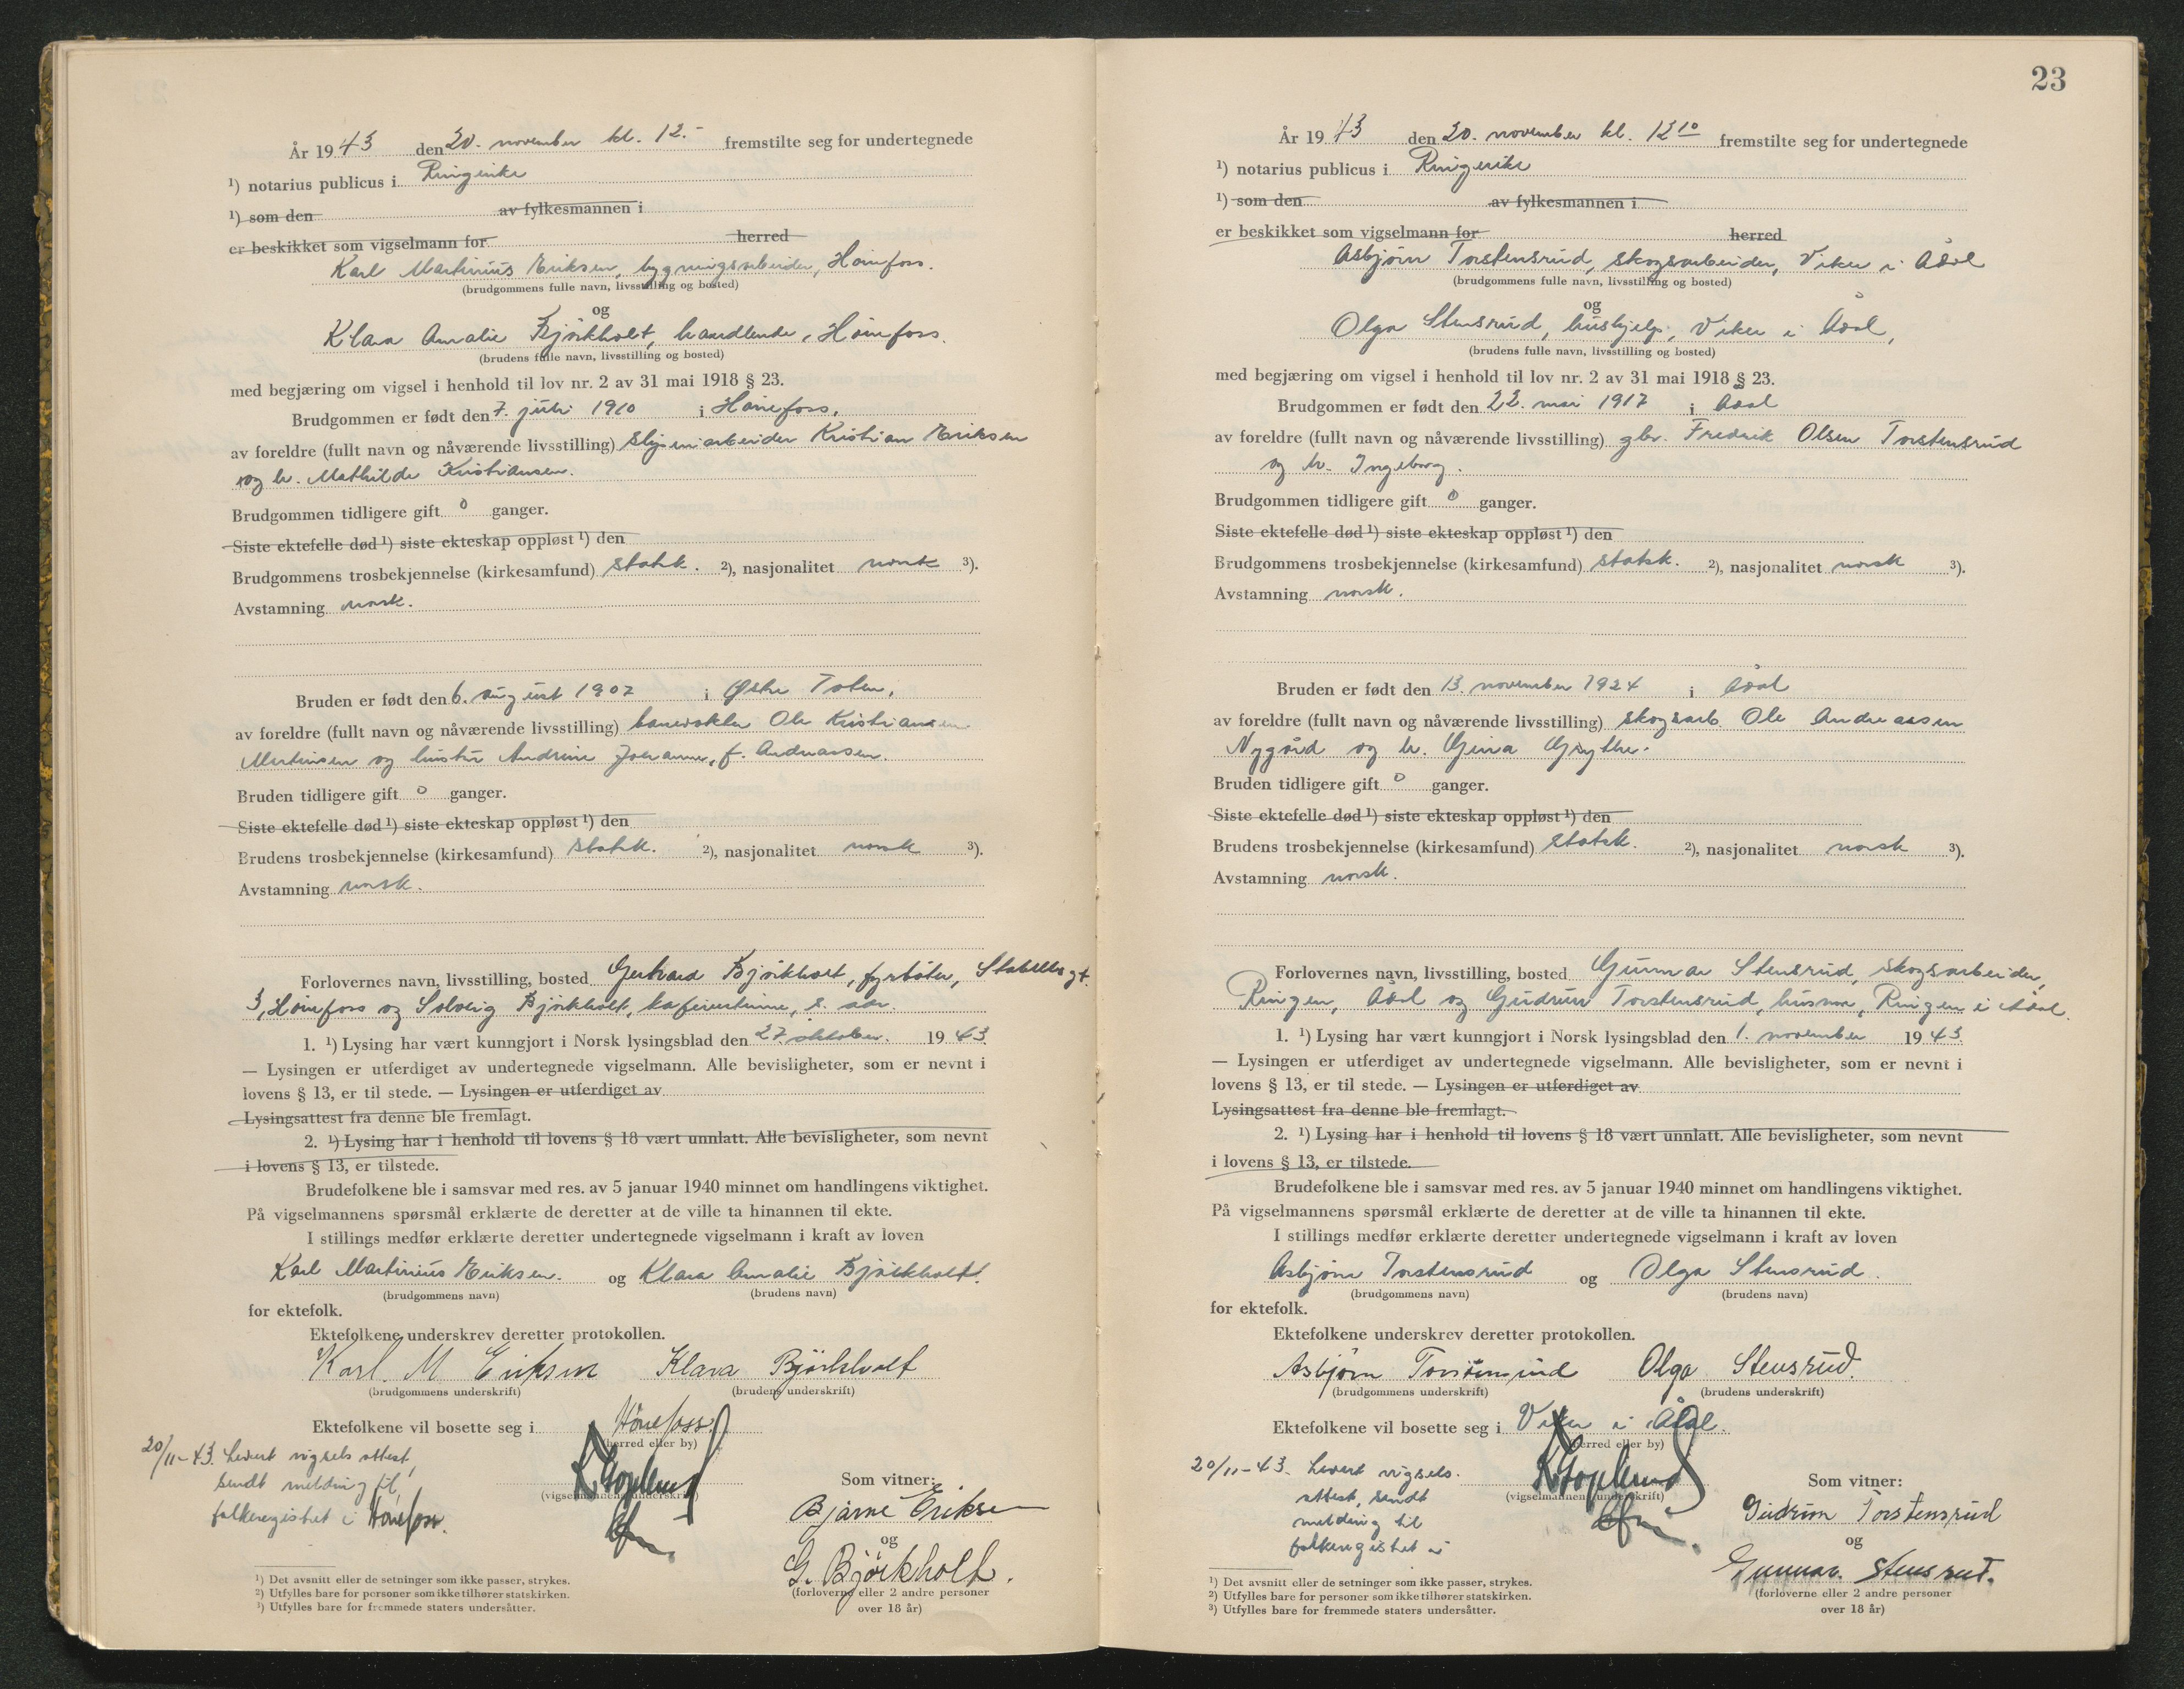 År 19 43 den 20. november kl. 12.- fremstilte seg for undertegnede
¹) notarius publicus i Ringerike
¹) som den av fylkesmannen i
er beskikket som vigselmann for herred
Karl Martinius Eriksen, bygningsarbeider, Hønefoss.
(brudgommens fulle navn, livsstilling og bosted)
og
Klara Amalie Bjørkholt, handlende, Hønefoss.
(brudens fulle navn, livsstilling og bosted)
med begjæring om vigsel i henhold til lov nr. 2 av 31 mai 1918 § 23.
Brudgommen er født den 7. juli 1910 i Hønefoss,
av foreldre (fullt navn og nåværende livsstilling) sliperiarbeider Kristian Eriksen
og h. Mathilde Kristiansen.
Brudgommen tidligere gift 0 ganger.
Siste ektefelle død ¹) siste ekteskap oppløst ¹) den
Brudgommens trosbekjennelse (kirkesamfund) statsk. ²), nasjonalitet norsk ³).
Avstamning norsk.
Bruden er født den 6. august 1907 i Østre Toten,
av foreldre (fullt navn og nåværende livsstilling) banevokter Ole Kristiansen
Martinsen og hustru Andrine Johanne, f. Andreassen.
Bruden tidligere gift 0 ganger.
Siste ektefelle død ¹) siste ekteskap oppløst ¹) den
Brudens trosbekjennelse (kirkesamfund) statsk. ²), nasjonalitet norsk ³).
Avstamning norsk.
Forlovernes navn, livsstilling, bosted Gerhard Bjørkholt, fyrbøter, Stabellsgt.
3, Hønefoss og Solveig Bjørkholt, kafevertinne, s. adr.
1. ¹) Lysing har vært kunngjort i Norsk lysingsblad den 27. oktober. 19 43
— Lysingen er utferdiget av undertegnede vigselmann. Alle bevisligheter, som er nevnt i
lovens § 13, er til stede. — Lysingen er utferdiget av
Lysingsattest fra denne ble fremlagt.
2. ¹) Lysing har i henhold til lovens § 18 vært unnlatt. Alle bevisligheter, som nevnt
i lovens § 13, er tilstede.
Brudefolkene ble i samsvar med res. av 5 januar 1940 minnet om handlingens viktighet.
På vigselmannens spørsmål erklærte de deretter at de ville ta hinannen til ekte.
I stillings medfør erklærte deretter undertegnede vigselmann i kraft av loven
Karl Martinius Eriksen. og Klara Amalie Bjørkholt.
(brudgommens navn) (brudens navn)
for ektefolk.
Ektefolkene underskrev deretter protokollen.
Karl. M Eriksen Klara Bjørkholt
(brudgommens underskrift) (brudens underskrift)
Ektefolkene vil bosette seg i Hønefoss.
(herred eller by)
20/11-43. Levert vigselsattest,
sendt melding til
folkeregistret i Hønefoss.
(vigselmannens underskrift)
Som vitner:
Bjarne Eriksen
og
G. Bjørkholt.
(forloverne eller 2 andre personer
over 18 år)
¹) Det avsnitt eller de setninger som ikke passer, strykes.
²) Utfylles bare for personer som ikke tilhører statskirken.
³) Utfylles bare for fremmede staters undersåtter.
23
År 19 43 den 20. november kl. 12¹⁰ fremstilte seg for undertegnede
¹) notarius publicus i Ringerike
¹) som den av fylkesmannen i
er beskikket som vigselmann for herred
Asbjørn Torstensrud, skogsarbeider, Viker i Ådal
(brudgommens fulle navn, livsstilling og bosted)
og
Olga Stensrud, hushjelp, Viker i Ådal,
(brudens fulle navn, livsstilling og bosted)
med begjæring om vigsel i henhold til lov nr. 2 av 31 mai 1918 § 23.
Brudgommen er født den 22. mai 1917 i Ådal
av foreldre (fullt navn og nåværende livsstilling) gbr. Fredrik Olsen Torstensrud
og h. Ingeborg.
Brudgommen tidligere gift 0 ganger.
Siste ektefelle død ¹) siste ekteskap oppløst ¹) den
Brudgommens trosbekjennelse (kirkesamfund) statsk. ²), nasjonalitet norsk ³).
Avstamning norsk.
Bruden er født den 13. november 1924 i Ådal
av foreldre (fullt navn og nåværende livsstilling) skogsarb. Ole Andreassen
Nygård og h. Gina Grythe.
Bruden tidligere gift 0 ganger.
Siste ektefelle død ¹) siste ekteskap oppløst ¹) den
Brudens trosbekjennelse (kirkesamfund) statsk. ²), nasjonalitet norsk ³).
Avstamning norsk.
Forlovernes navn, livsstilling, bosted Gunnar Stensrud, skogsarbeider,
Ringen, Ådal og Gudrun Torstensrud, husmor, Ringen i Ådal.
1. ¹) Lysing har vært kunngjort i Norsk lysingsblad den 1. november 19 43
— Lysingen er utferdiget av undertegnede vigselmann. Alle bevisligheter, som er nevnt i
lovens § 13, er til stede. — Lysingen er utferdiget av
Lysingsattest fra denne ble fremlagt.
2. ¹) Lysing har i henhold til lovens § 18 vært unnlatt. Alle bevisligheter, som nevnt
i lovens § 13, er tilstede.
Brudefolkene ble i samsvar med res. av 5 januar 1940 minnet om handlingens viktighet.
På vigselmannens spørsmål erklærte de deretter at de ville ta hinannen til ekte.
I stillings medfør erklærte deretter undertegnede vigselmann i kraft av loven
Asbjørn Torstensrud og Olga Stensrud.
(brudgommens navn) (brudens navn)
for ektefolk.
Ektefolkene underskrev deretter protokollen.
Asbjörn Torstensrud Olga Stensrud.
(brudgommens underskrift) (brudens underskrift)
Ektefolkene vil bosette seg i Viker i Ådal.
(herred eller by)
20/11-43. Levert vigsels-
attest, sendt
melding til
folkeregistret i
(vigselmannens underskrift)
Som vitner:
Gudrun Torstensrud
og
Gunnar. Stensrud.
(forloverne eller 2 andre personer
over 18 år)
¹) Det avsnitt eller de setninger som ikke passer, strykes.
²) Utfylles bare for personer som ikke tilhører statskirken.
³) Utfylles bare for fremmede staters undersåtter.